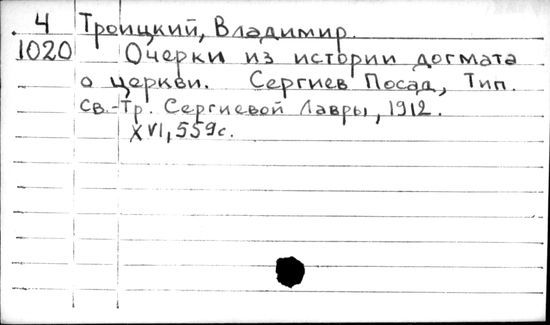 4 Троицкий, Владимир.
1020 Очерки из истории догмата
о церкви. Сергиев Посад, Тип.
Св.-Тр. Сергиевой Лавры, 1912.
XVI, 559с.